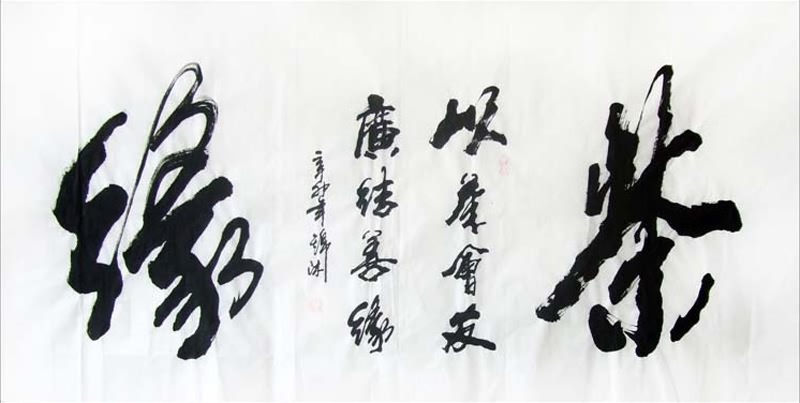 茶
以茶會友
廣結善緣
辛卯年錦洲
緣